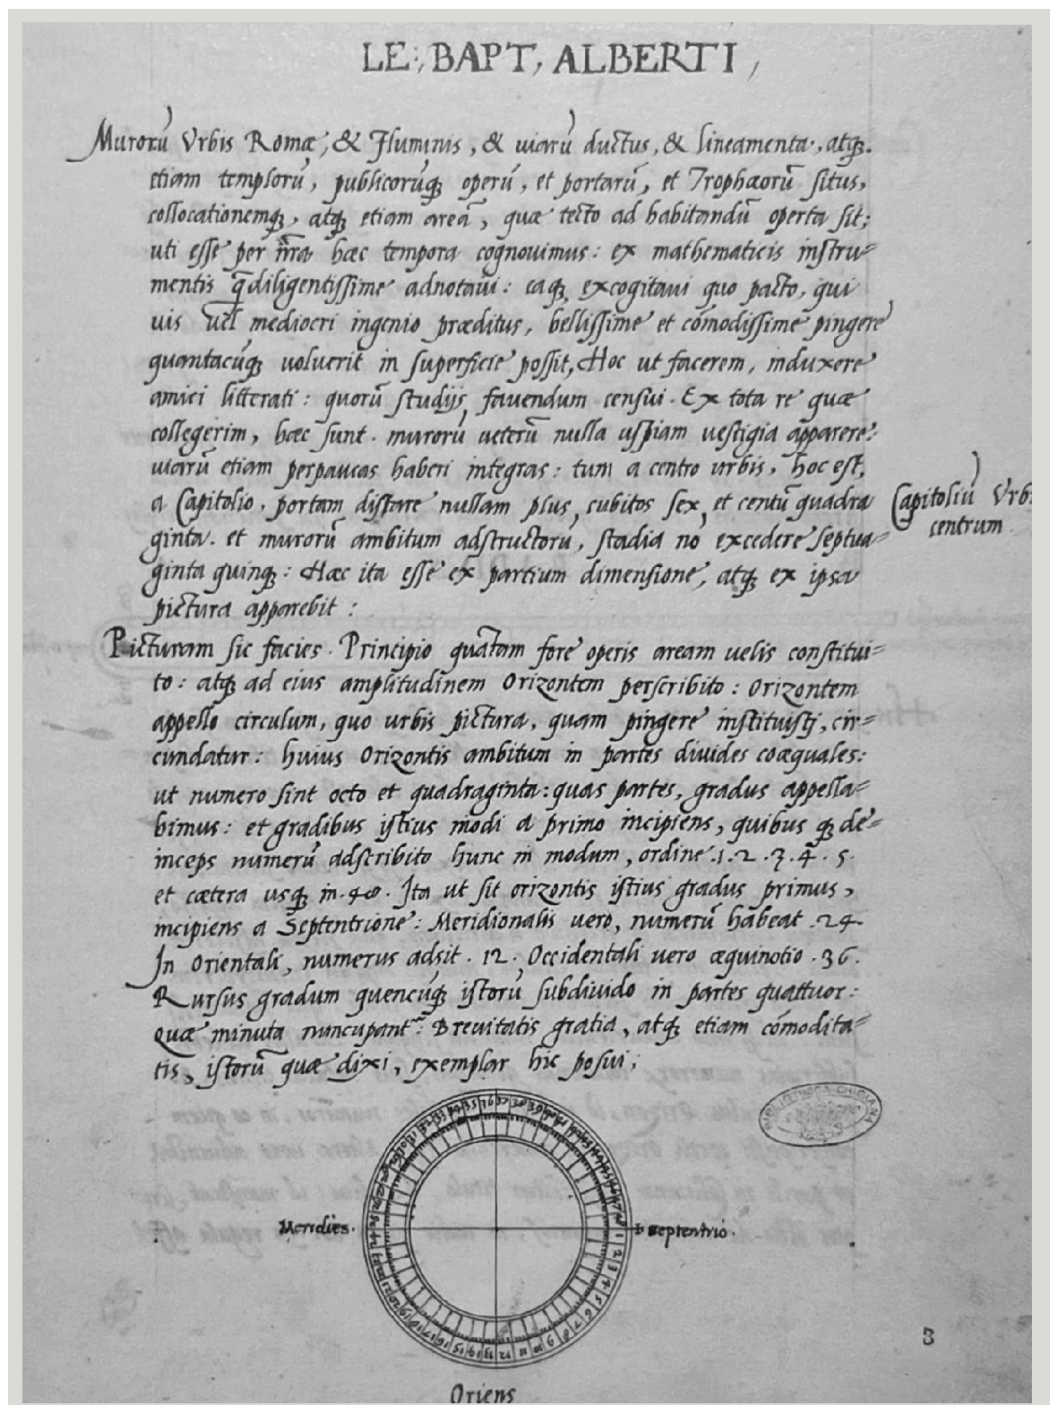 LE: BAPT, ALBERTI,
Murorũ Vrbis Romæ, & Fluminis, & uiarũ ductus, & lineamenta, atq;.
etiam templorũ, publicorũq; operũ, et portarũ, et Trophæorũ situs,
collocationemq;, atq; etiam areã, quæ tecto ad habitandũ operta sit;
uti esse per nr̃a hæc tempora cognouimus: ex mathematicis instru=
mentis q̃diligentissime adnotaui: eaq; excogitaui quo pacto, qui
uis uel mediocri ingenio præditus, bellissime et cõmodissime pingere
quantacũq; uoluerit in superficie possit, Hoc ut facerem, induxere
amici litterati: quorũ studijs fauendum censui. Ex tota re quæ
collegerim, hæc sunt. murorũ ueterũ nulla uspiam uestigia apparere:
uiarũ etiam perpaucas haberi integras: tum a centro urbis, hoc est,
a Capitolio, portam distare nullam plus, cubitos sex, et centũ quadra
ginta. et murorũ ambitum adstructorũ, stadia nõ excedere septua=
ginta quinq;: Hæc ita esse ex partium dimensione, atq; ex ipsa
pictura apparebit:
Capitoliũ Vrbi
centrum.
Picturam sic facies. Principio quãtam fore operis aream uelis constitui=
to: atq; ad eius amplitudinem Orizontem perscribito: Orizontem
appello circulum, quo urbis pictura, quam pingere instituisti, cir=
cundatur: huius Orizontis ambitum in partes diuides coæquales:
ut numero sint octo et quadraginta: quas partes, gradus appella=
bimus: et gradibus istius modi a primo incipiens, quibus q; de=
inceps numerũ adscribito hunc in modum, ordine .1. 2. 3. 4. 5.
et cætera usq; in .48. Ita ut sit orizontis istius gradus primus,
incipiens a Septentrione: Meridionalis uero, numerũ habeat .24.
In Orientali, numerus adsit .12. Occidentali uero æquinotio .36.
Rursus gradum quencũq; istorũ subdiuido in partes quattuor:
Quæ minuta nuncupantᷣ: Breuitatis gratia, atq; etiam cõmodita=
tis, istorũ quæ dixi, exemplar hic posui;
BIBLIOTHECA CHIGIANA
Meridies.
septentrio.
3
Oriens